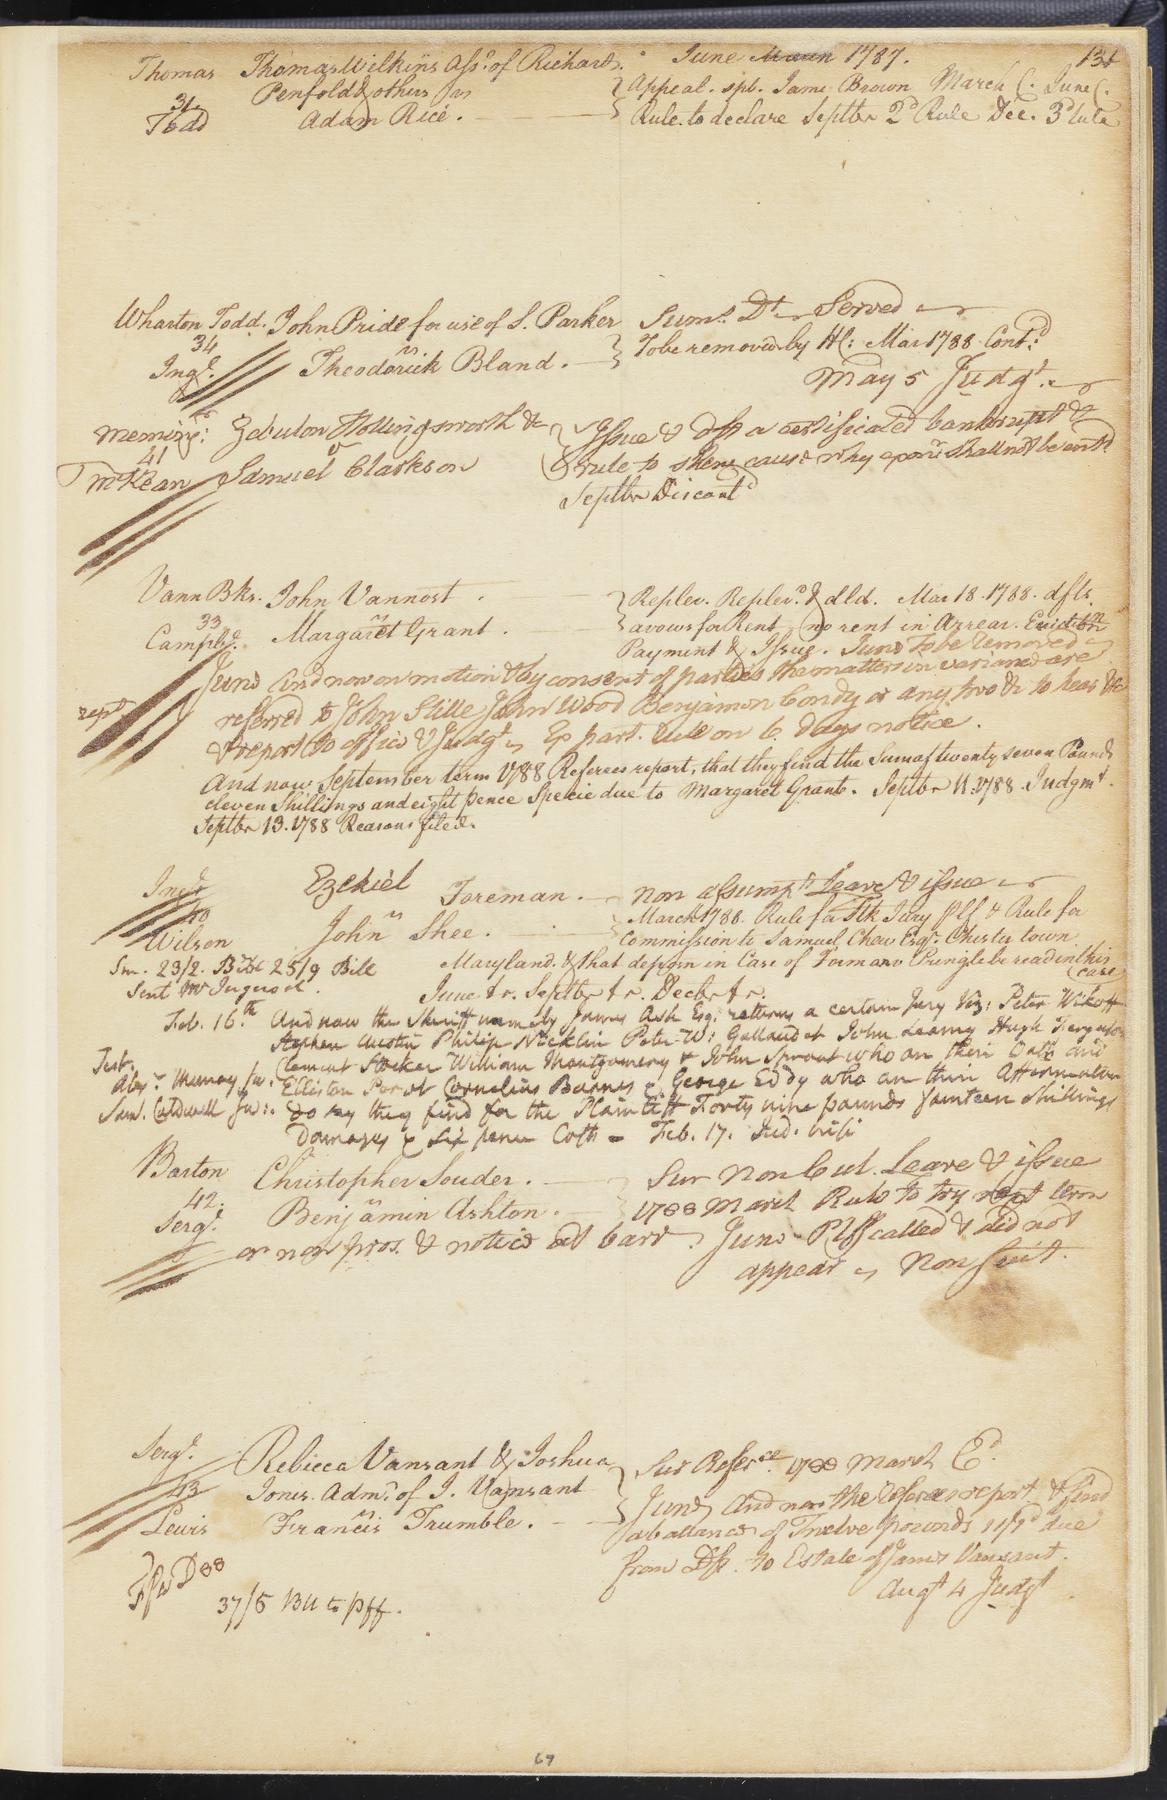 June 1787. 131
Thomas Thomas Wilkins Assᵉ of Richard
Penfold & others
31
Todd
Adam Rice.
Appeal. spl. Jame Brown March C. June C.
Rule to declare Septbr 2ᵈ Rule Dec. 3ᵈ Rule
Wharton Todd. John Pride for use of S. Parker
34
Ingˡ.
Theodorick Bland.
Sumˢ. Dᵗ Served
To be removed by Hl: Mar 1788 Contᵈ
May 5 Judgᵗ.
Zebulon Hollingsworth &c
41
McKean Samuel Clarkson
Issue & dft a certificated bankrupt &
rule to shew cause why shall not be entᵈ
Septbr Discontᵈ
Vann Bks. John Vannost.
33
Campbˡ. Margaret Grant.
Replev. Replevᵈ. & dld. Mar 18. 1788. dfts.
avows for Rent no rent in Arrear. Eviction
Payment & Issue. June To be removed
June And now on motion & by consent of parties the matters in variance are
referred to John Stille John Wood Benjamin Condy or any two &c to hear &c
rept
& report to office & Judgᵗ Ex part. Rule on 6 days notice.
And now September term 1788 Referees report, that they find the Sum of twenty seven Pounds
eleven Shillings and eight pence Specie due to Margaret Grant. Septbr 11. 1788. Judgmᵗ.
Septbr 13. 1788 Reasons filed.
Ingˡ Ezekiel Foreman.
40
Wilson John Shee.
non assumpᵗ Leave & issue
March 1788. Rule for Stk Jury Plf & Rule for
Commission to Samuel Chew Esqʳ. Chester town
Maryland. & that deposn in Case of Forman v Pringle be read in this
case
Sm. 23/2. 25/9 Bill
Sent Mr Ingersol.
June tr. Septbr tr. Decbr tr.
Feb. 16.ᵗʰ And now the Sheriff namely James Ash Esq. returns a certain Jury Viz: Peter Wikoff
Stephen Austin Philip Nicklin Peter W: Gallaudet John Leamy Hugh Ferguson
Clement Stocker William Montgomery & John Sprout who on their Oath and
Test.
Alexʳ. Murray Ju. Elliston Perot Cornelius Barnes & George Eddy who on their Affirmation
Saml. Caldwell Ju: do say they find for the Plaintiff Forty nine pounds fourteen Shillings
Damages & six pence Costs Feb. 17. Jud. nisi
Barton Christopher Souder.
42.
Sergˡ. Benjamin Ashton.
Sur Non Cul. Leave & issue
1788 March Rule to try next term
or non pros. & notice at barr. June Plff called & did not
appear Non Suit.
Sergˡ. Rebecca Vansant & Joshua
Jones. Admʳ of J. Vansant
43
Lewis Francis Trumble.
Sur Referᶜᵉ. 1788 March Cᵈ.
June And now the referees report & find
a ballance of Twelve pounds 11/1ᵈ due
from Dft. to Estate of James Vansant.
Augᵗ 4 Judgᵗ
37/5 Bll to Pff.
67